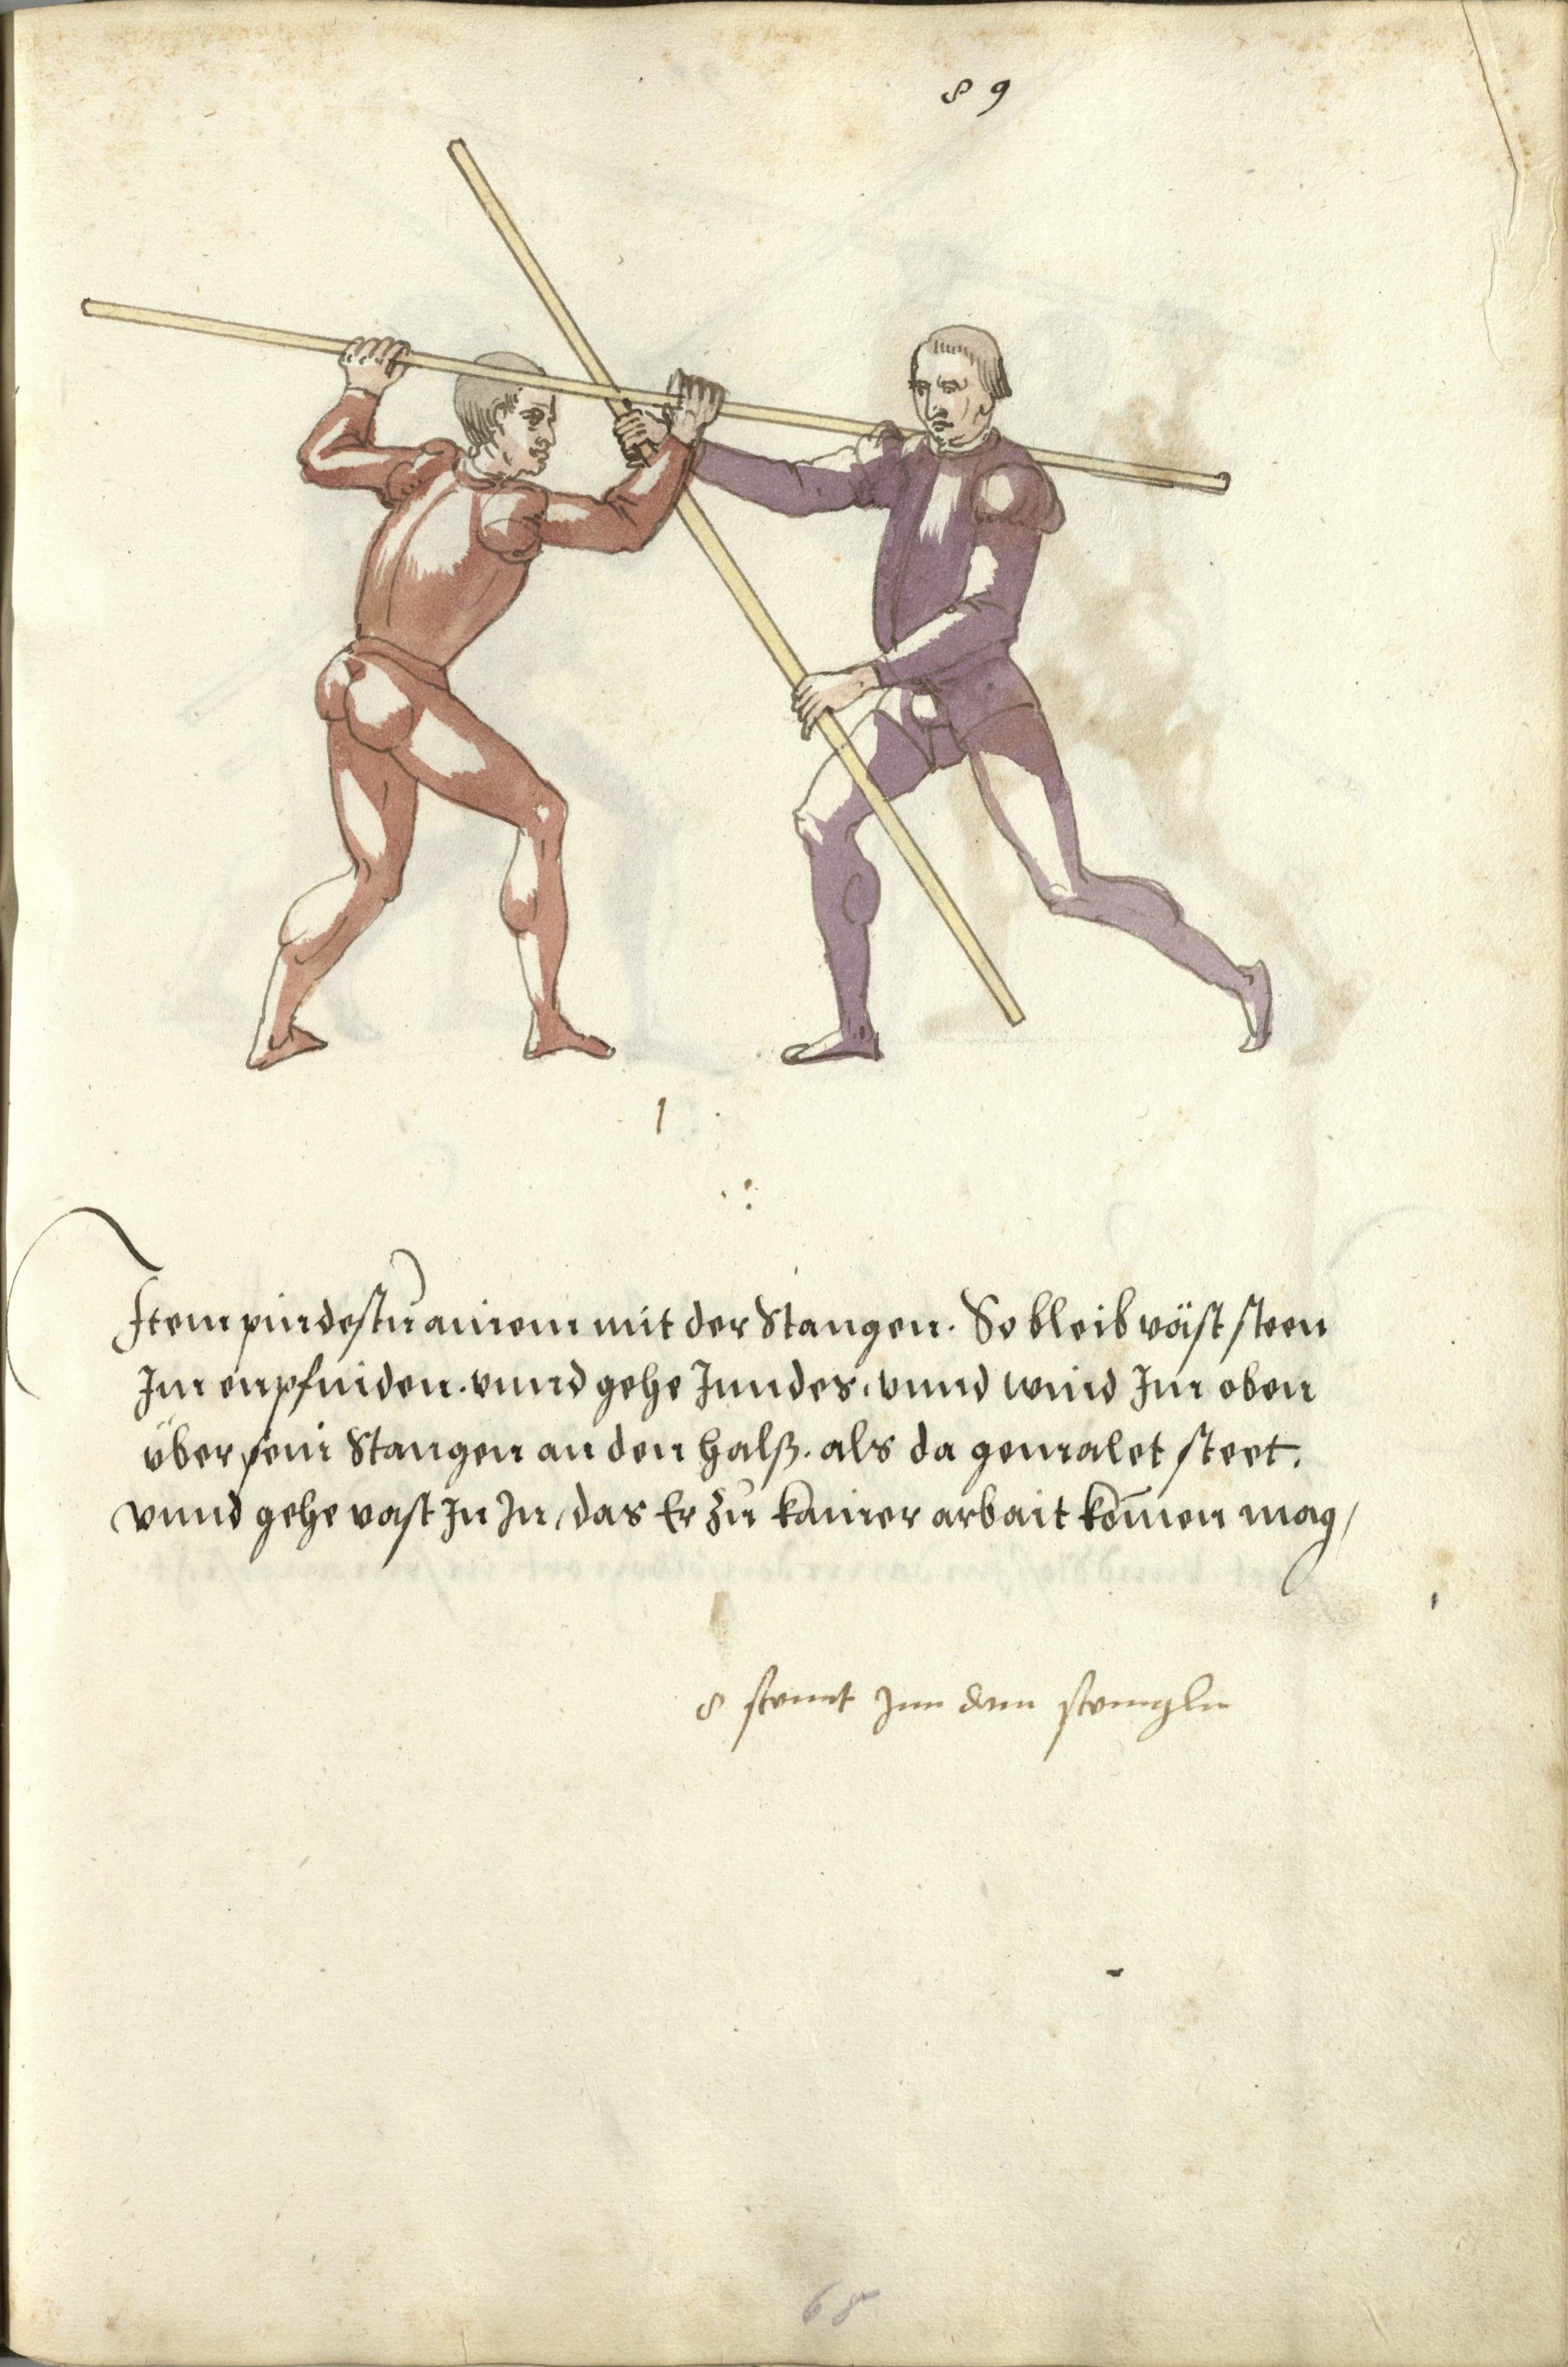 89
1
Item pindestu ainem mit der Stangen. So bleib väst steen
Im enpfinden. vnnd gehe Inndes, vnnd wind Im oben
über sein Stangen an den halß. als da gemalet steet.
vnnd gehe vast In In, das Er zů kainer arbait komen mag,
8 stuut Inn dem stenngln
68